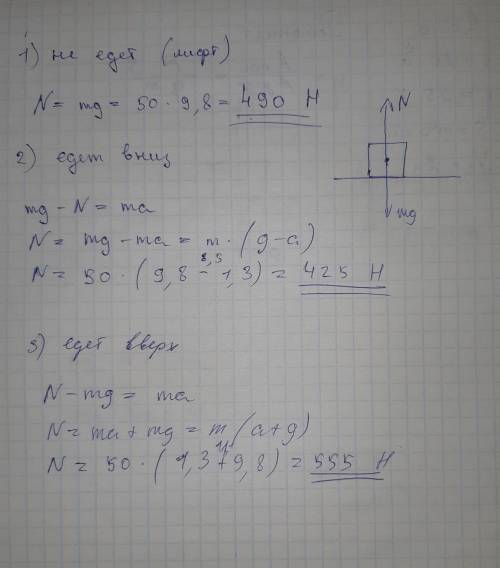 1) не едет (лифт)
N = mg = 50 · 9,8 = 490 Н
N
mg
2) едет вниз
mg - N = ma
N = mg - ma = m · (g - a)
8,5
N = 50 · (9,8 - 1,3) = 425 Н
3) едет вверх
N - mg = ma
N = ma + mg = m (a + g)
N = 50 · (1,3 + 9,8) = 555 Н